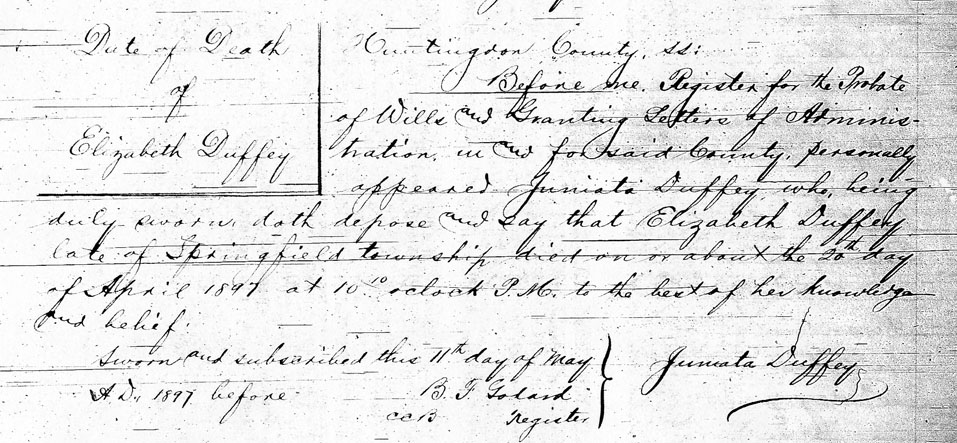 Date of Death
of
Elizabeth Duffey
Huntingdon County, ss:
Before me, Register for the Probate
of Wills and Granting Letters of Adminis-
tration, in and for said County, personally
appeared Juniata Duffey who, being
duly sworn, doth depose and say that Elizabeth Duffey
late of Springfield township died on or about the 20th day
of April 1897 at 10 oclock P.M. to the best of her knowledge
and belief.
Sworn and subscribed this 11th day of May
A.D., 1897 before
B. F.
Register
Juniata Duffey